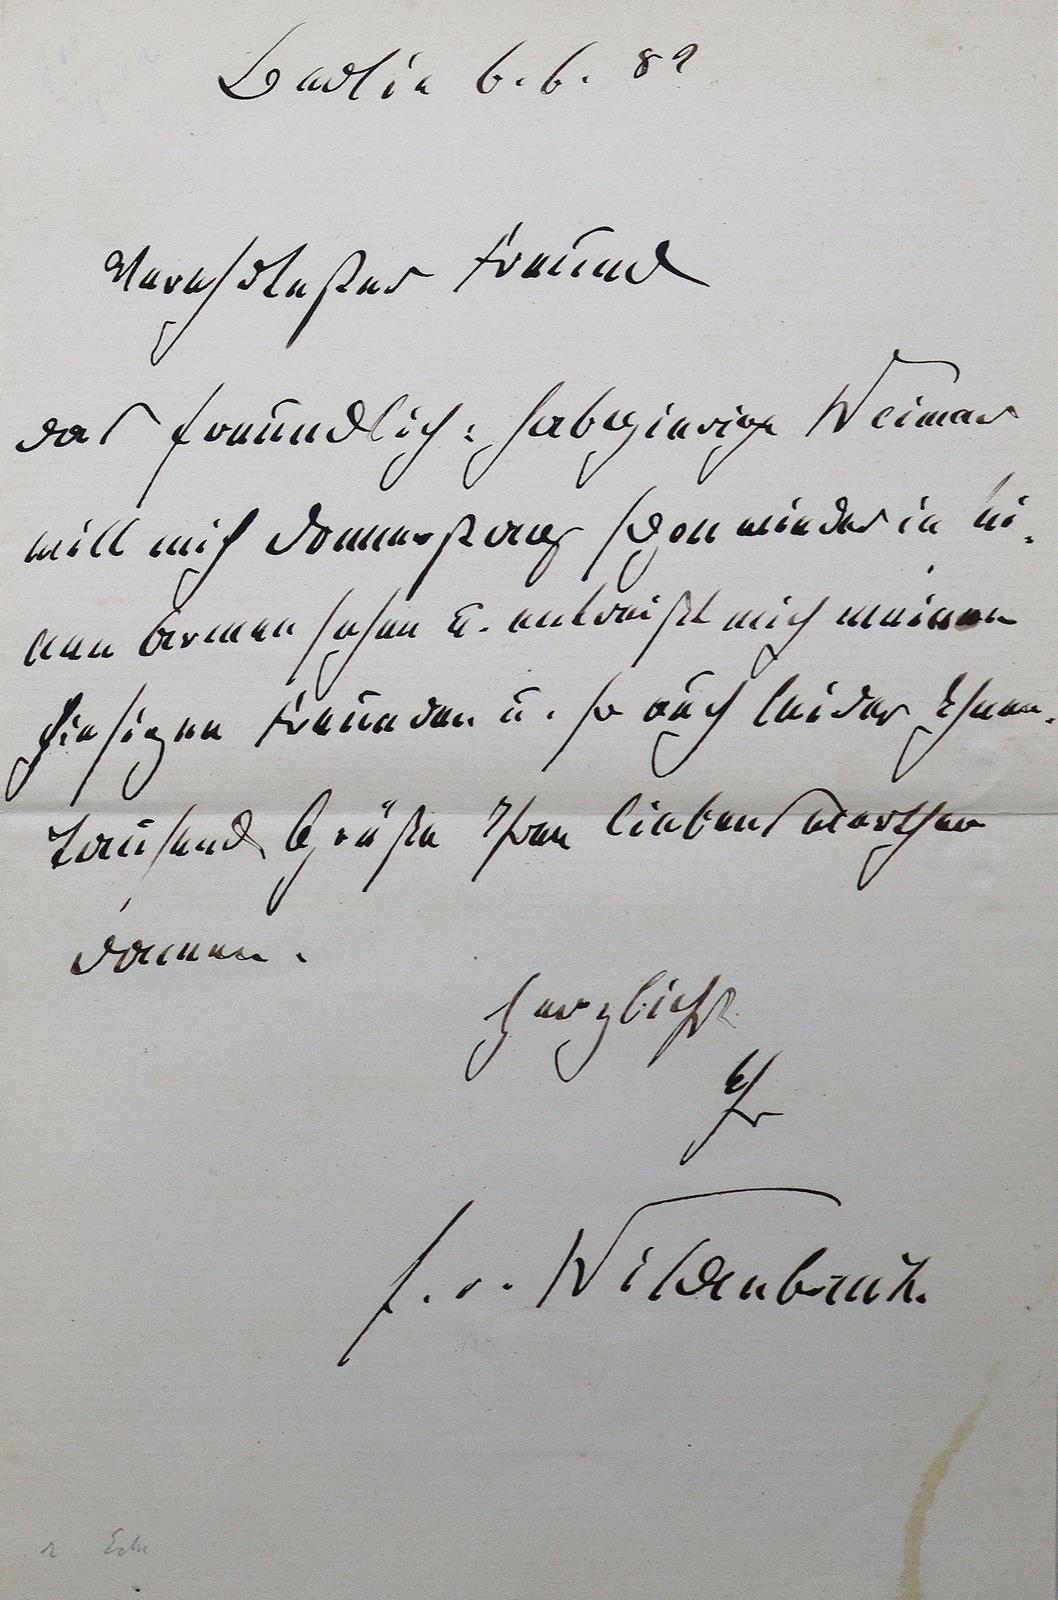 Berlin 6. 6. 89
Verehrtester Freund
das freundlich: habgierige Weimar
will mich Donnerstag schon wieder in sei-
nen Armen sehen u. entreißt mich meinen
hiesigen Freunden u. so auch leider Ihnen.
Tausend Grüße Ihren liebenswerthen
Damen.
Herzlichst
Ihr
E. v. Wildenbruch.